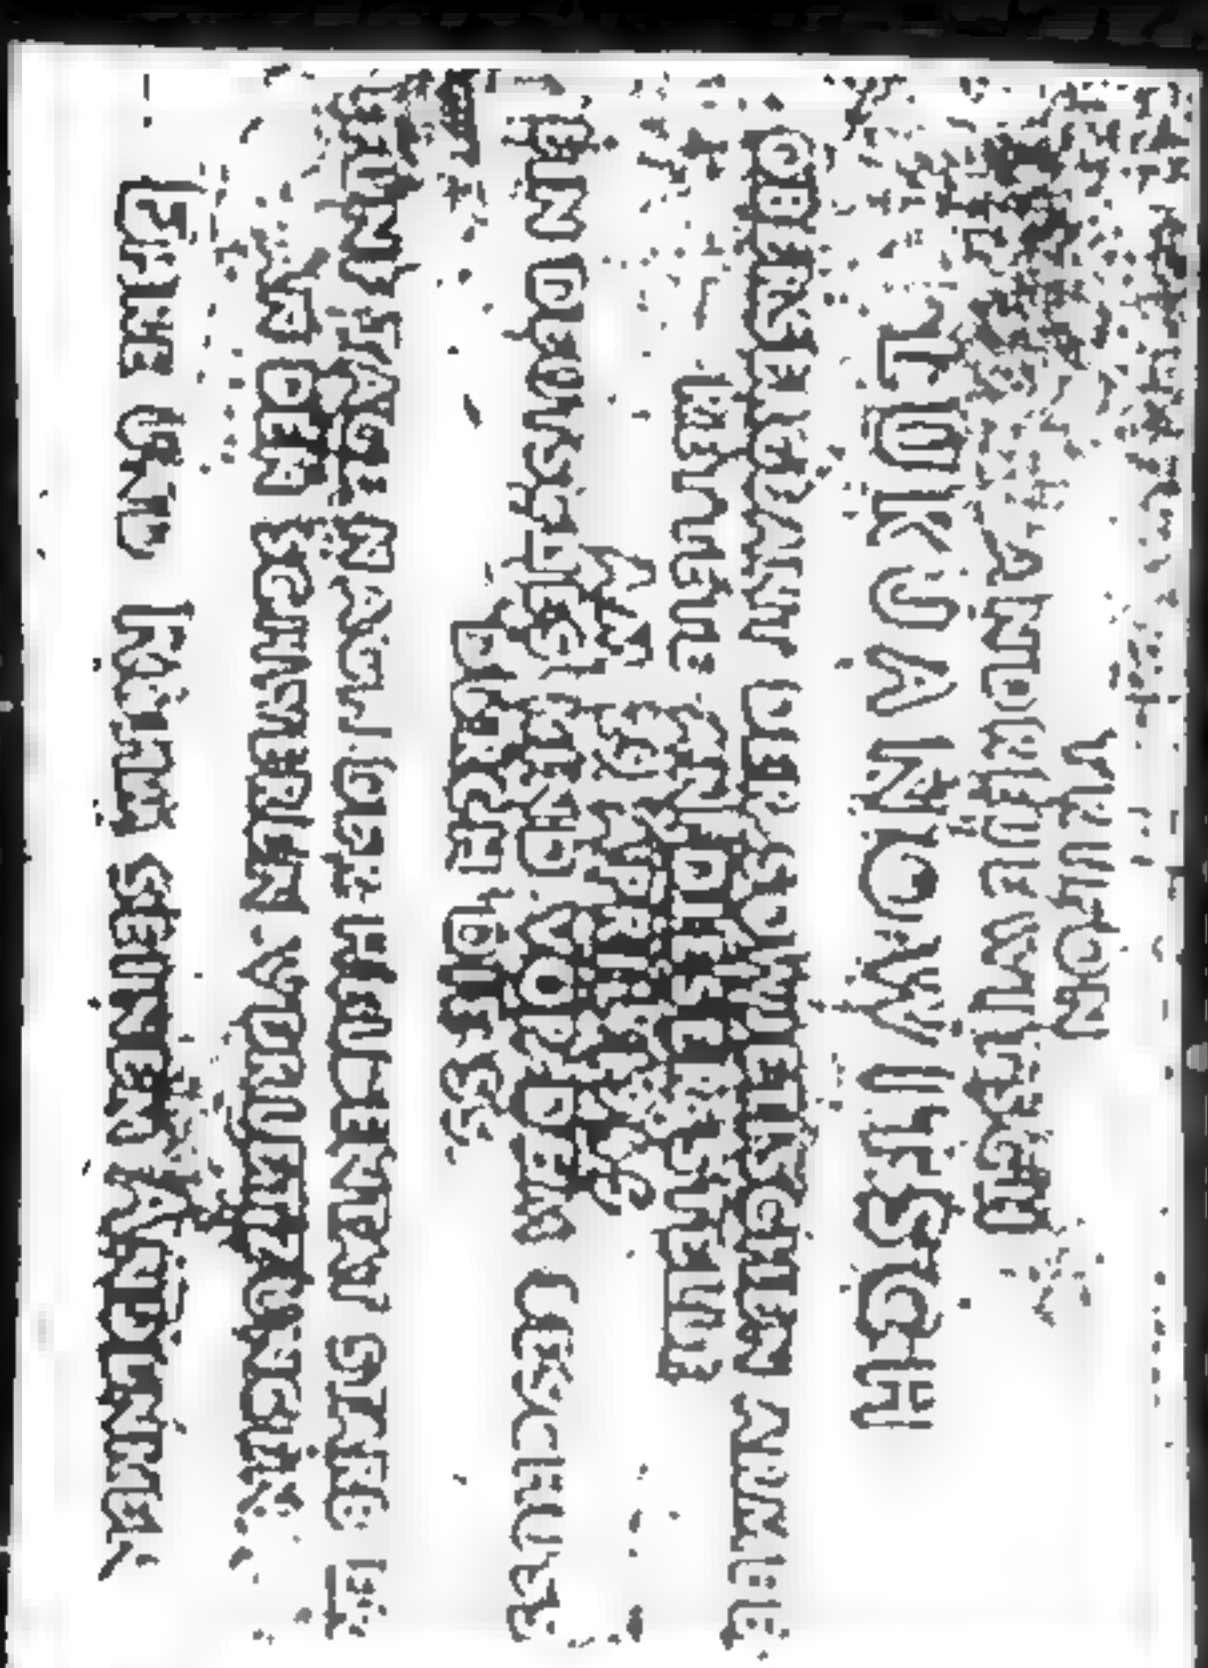 TRIFON
ANDREJEWITSCH
LUKJANOWITSCH
OBERSERGEANT DER SOWJETISCHEN ARMEE
RETTETE AN DIESER STELLE
AM 29. APRIL 1945
EIN DEUTSCHES KIND VOR DEM BESCHUSS
DURCH DIE SS.
FÜNF TAGE NACH DER HELDENTAT STARB ER
AN DEN SCHWEREN VERWUNDUNGEN.
EHRE UND RUHM SEINEM ANDENKEN